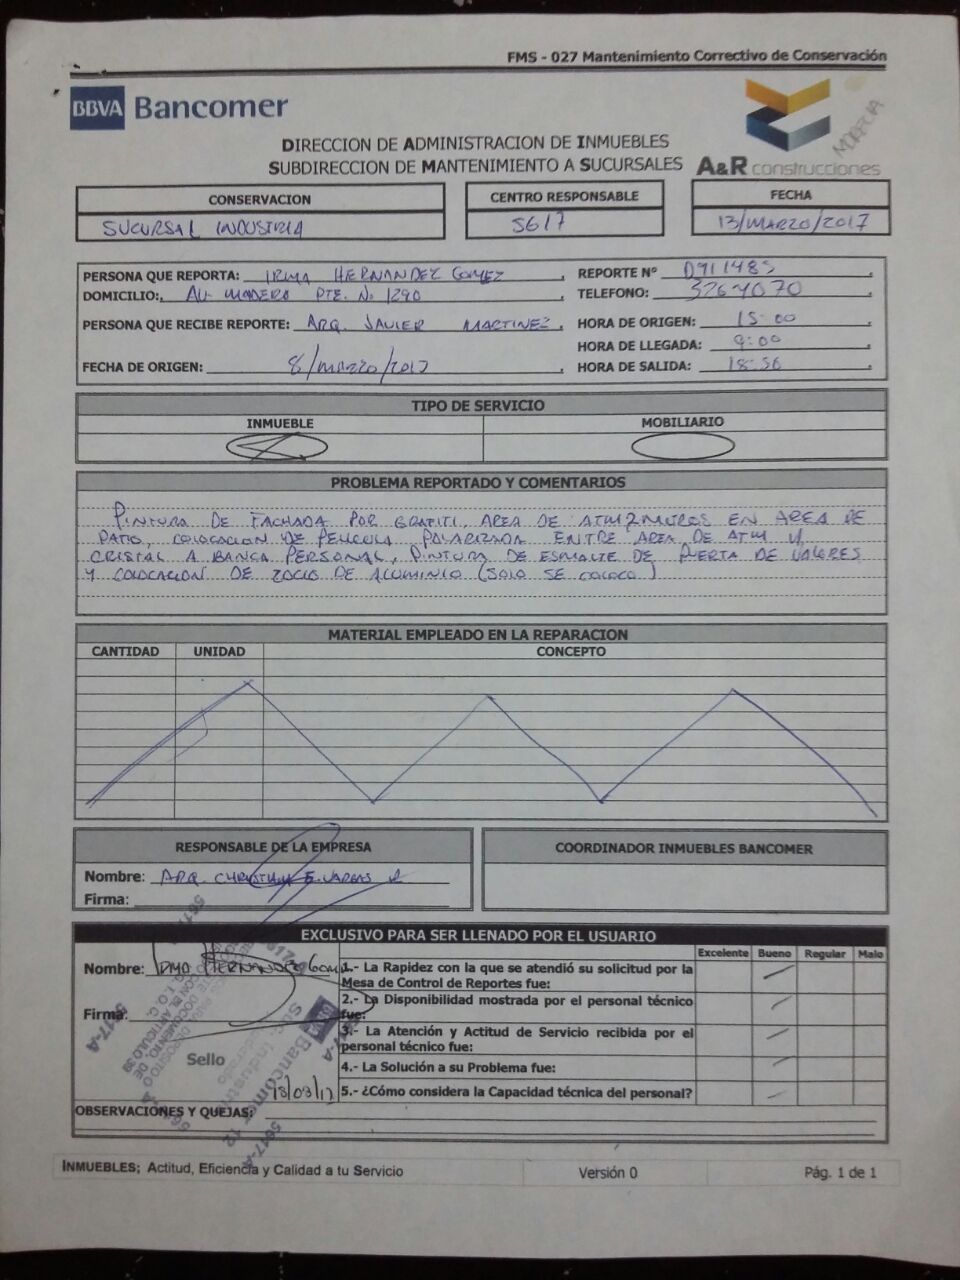 FMS - 027 Mantenimiento Correctivo de Conservación
BBVA Bancomer
MORELIA
DIRECCION DE ADMINISTRACION DE INMUEBLES
SUBDIRECCION DE MANTENIMIENTO A SUCURSALES
A&R construcciones
CONSERVACION
SUCURSAL INDUSTRIA
CENTRO RESPONSABLE
5617
FECHA
13/MARZO/2017
PERSONA QUE REPORTA: IRMA HERNANDEZ GOMEZ
REPORTE Nº D911485
DOMICILIO: AV. MADERO PTE. No 1290
TELEFONO: 3264070
PERSONA QUE RECIBE REPORTE: ARQ. JAVIER MARTINEZ
HORA DE ORIGEN: 15:00
HORA DE LLEGADA: 9:00
FECHA DE ORIGEN: 8/MARZO/2017
HORA DE SALIDA: 18:56
TIPO DE SERVICIO
INMUEBLE
MOBILIARIO
PROBLEMA REPORTADO Y COMENTARIOS
PINTURA DE FACHADA POR GRAFITI, AREA DE ATM, 2 MUROS EN AREA DE
PATIO, COLOCACION DE PELICULA POLARIZADA ENTRE AREA DE ATM Y/
CRISTAL A BANCA PERSONAL, PINTURA DE ESMALTE DE PUERTA DE VALORES
Y COLOCACION DE ZOCLO DE ALUMINIO (SOLO SE COLOCO)
MATERIAL EMPLEADO EN LA REPARACION
CANTIDAD UNIDAD CONCEPTO
RESPONSABLE DE LA EMPRESA
Nombre: ARQ. CHRISTIAN E. VARGAS R
Firma:
COORDINADOR INMUEBLES BANCOMER
EXCLUSIVO PARA SER LLENADO POR EL USUARIO
Excelente Bueno Regular Malo
Nombre: Irma Hernandez Gomez
1.- La Rapidez con la que se atendió su solicitud por la
Mesa de Control de Reportes fue:
2.- La Disponibilidad mostrada por el personal técnico
fue:
Firma:
3.- La Atención y Actitud de Servicio recibida por el
personal técnico fue:
4.- La Solución a su Problema fue:
5.- ¿Cómo considera la Capacidad técnica del personal?
Sello
13/03/17
5617-A
BBVA Bancomer
Suc. Industria
OBSERVACIONES Y QUEJAS:
INMUEBLES; Actitud, Eficiencia y Calidad a tu Servicio
Versión 0
Pág. 1 de 1